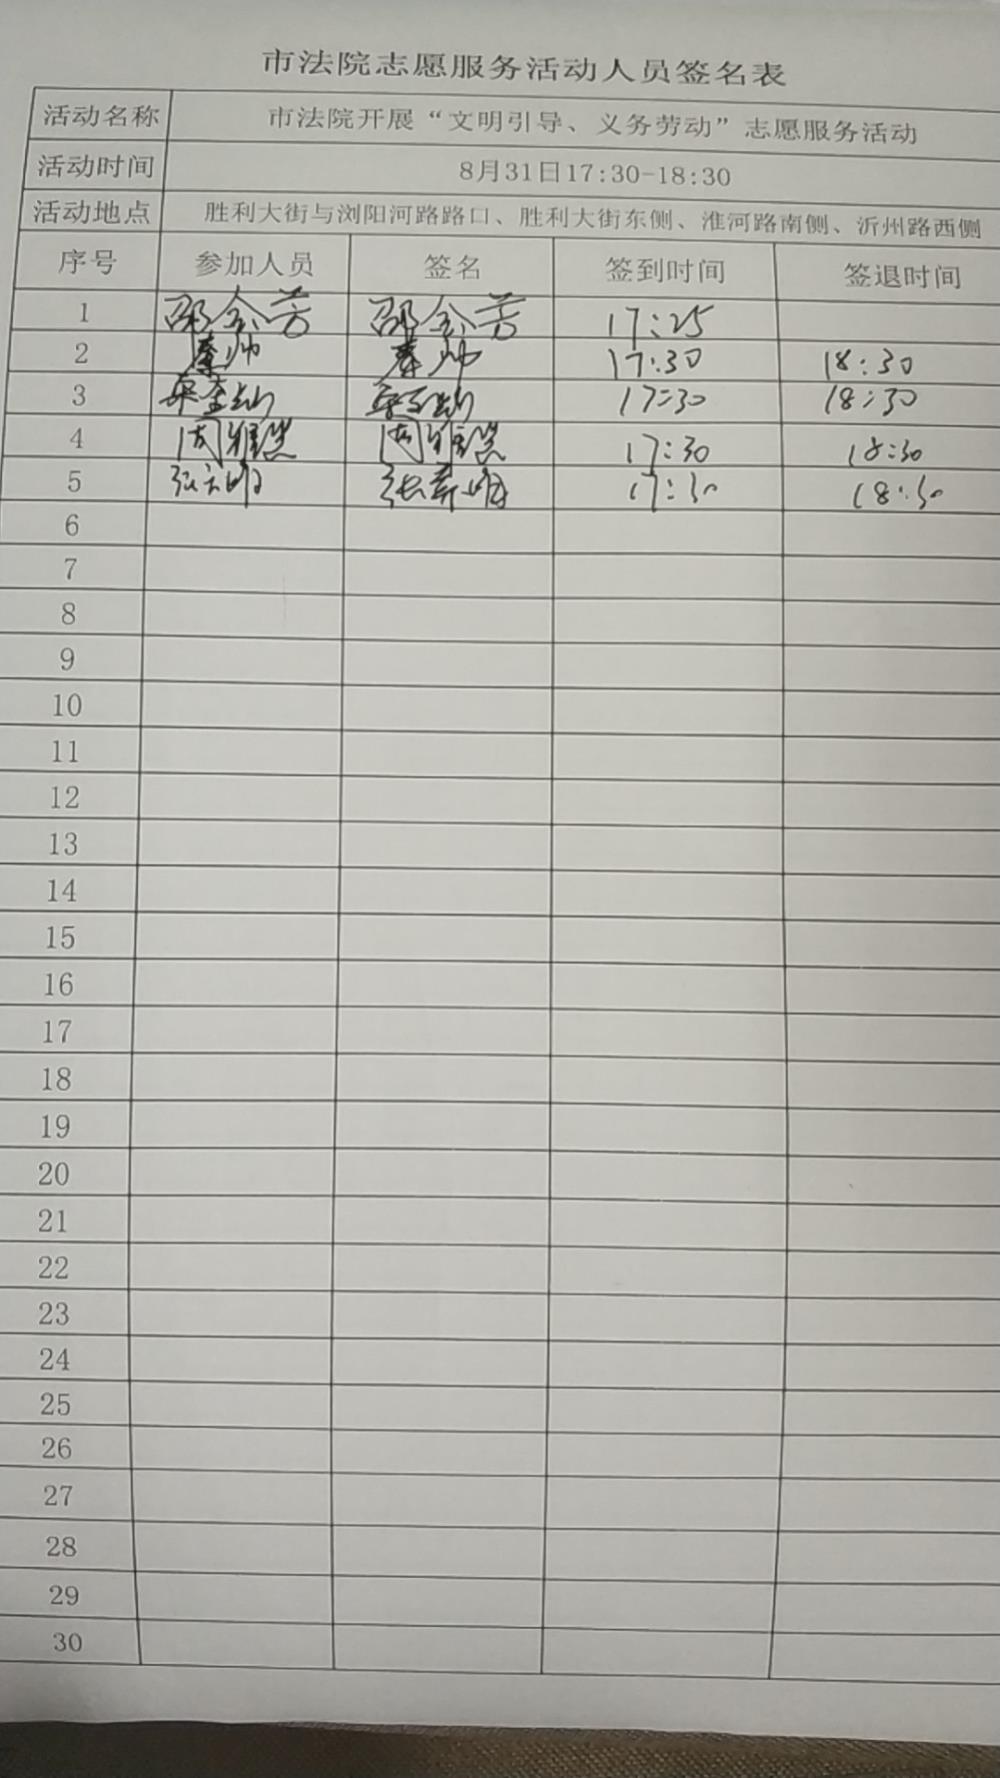 市法院志愿服务活动人员签名表
活动名称 市法院开展“文明引导、义务劳动”志愿服务活动
活动时间 8月31日17:30-18:30
活动地点 胜利大街与浏阳河路路口、胜利大街东侧、淮河路南侧、沂州路西侧
序号 参加人员 签名 签到时间 签退时间
1 邵全芳 邵全芳 17:25
2 秦帅 秦帅 17:30 18:30
3 17:30 18:30
4 周雅 周雅 17:30 18:30
5 张 张 17:30 18:30
6
7
8
9
10
11
12
13
14
15
16
17
18
19
20
21
22
23
24
25
26
27
28
29
30